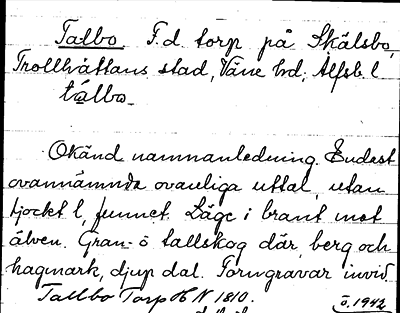 Talbo F.d. torp på Skälsbo,
Trollhättans stad, Väne hrd; Älfsb. l
tálbo
Okänd namnanledning. Endast
ovannämnda ovanliga uttal, utan
tjockt l, funnet. Läge i brant mot
älven. Gran- o tallskog där, berg och
hagmark, djup dal. Forngravar invid.
Tallbo Torp N 1810.
ö. 1942